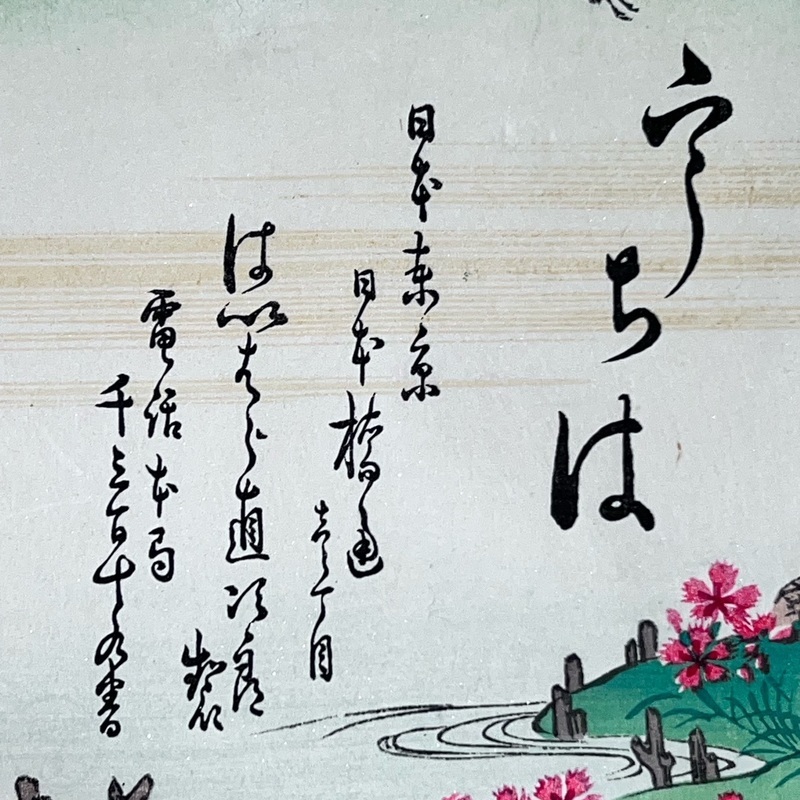 うちは
日本東京
日本橋通
壱丁目
はいばら直次郎
製
電話本局
千三百十九番